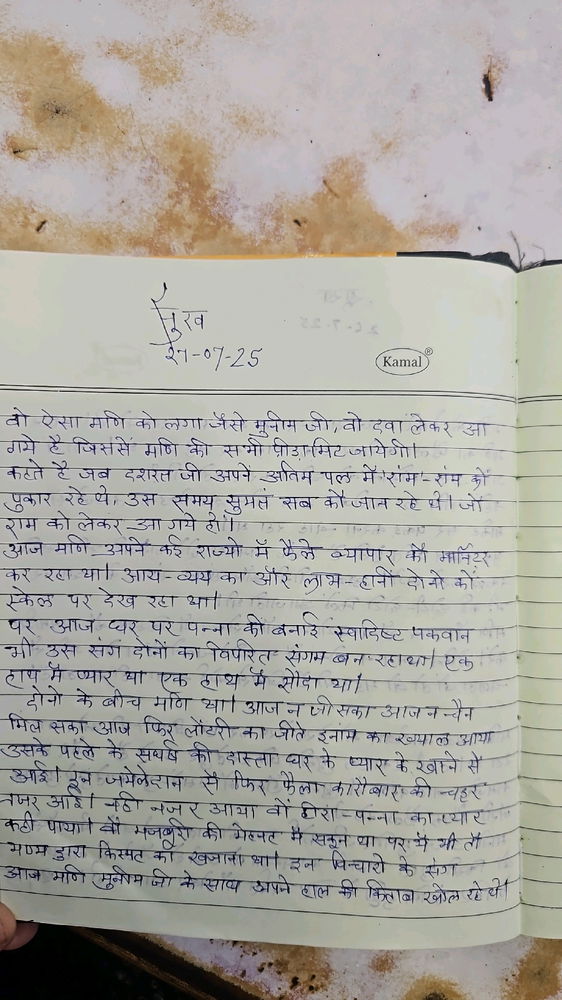 सुख
27-07-25
Kamal®
वो ऐसा मणि को लगा जैसे मुनीम जी, वो दवा लेकर आ
गये है जिससें मणि की सभी पीडा मिट जायेगी।
कहते है जब दशरत जी अपने अंतिम पल में 'राम'-राम कों
पुकार रहे थे, उस समय सुमतं सब कों जान रहे थे। जों
राम को लेकर आ गये हो।
आज मणि अपने कई राज्यो में फैले व्यापार कीं मॉनिटर
कर रहा था। आय-व्यय का और लाभ-हानी दोनों कों
स्केल पर देख रहा था।
पर आज घर पर पन्ना की बनाई स्वादिष्ट पकवान
भी उस संग दोनों का विपरित संगम बन रहा था। एक
हाथ में प्यार था एक हाथ में सौदा था।
दोनो के बीच मणि था। आज न जीसका आज न चैन
मिल सका आज फिर लॉटरी का जीते इनाम का ख्याल आया
उसके पहले के सघर्ष की दास्ता घर के प्यार के खाने से
आई। इन जमेलेदान से फिर फैला कारोबार की चद्दर
नजर आई। नही नजर आया वों हीरा-पन्ना का प्यार
कही पाया। वों मजबूरी की मेहनत में सकून था पर ये भी तों
भग्य द्वारा किस्मत का खजाना था। इन विचारों के संग
आज मणि मुनीम जी के साथ अपने हाल की किताब खोल रहे थे।